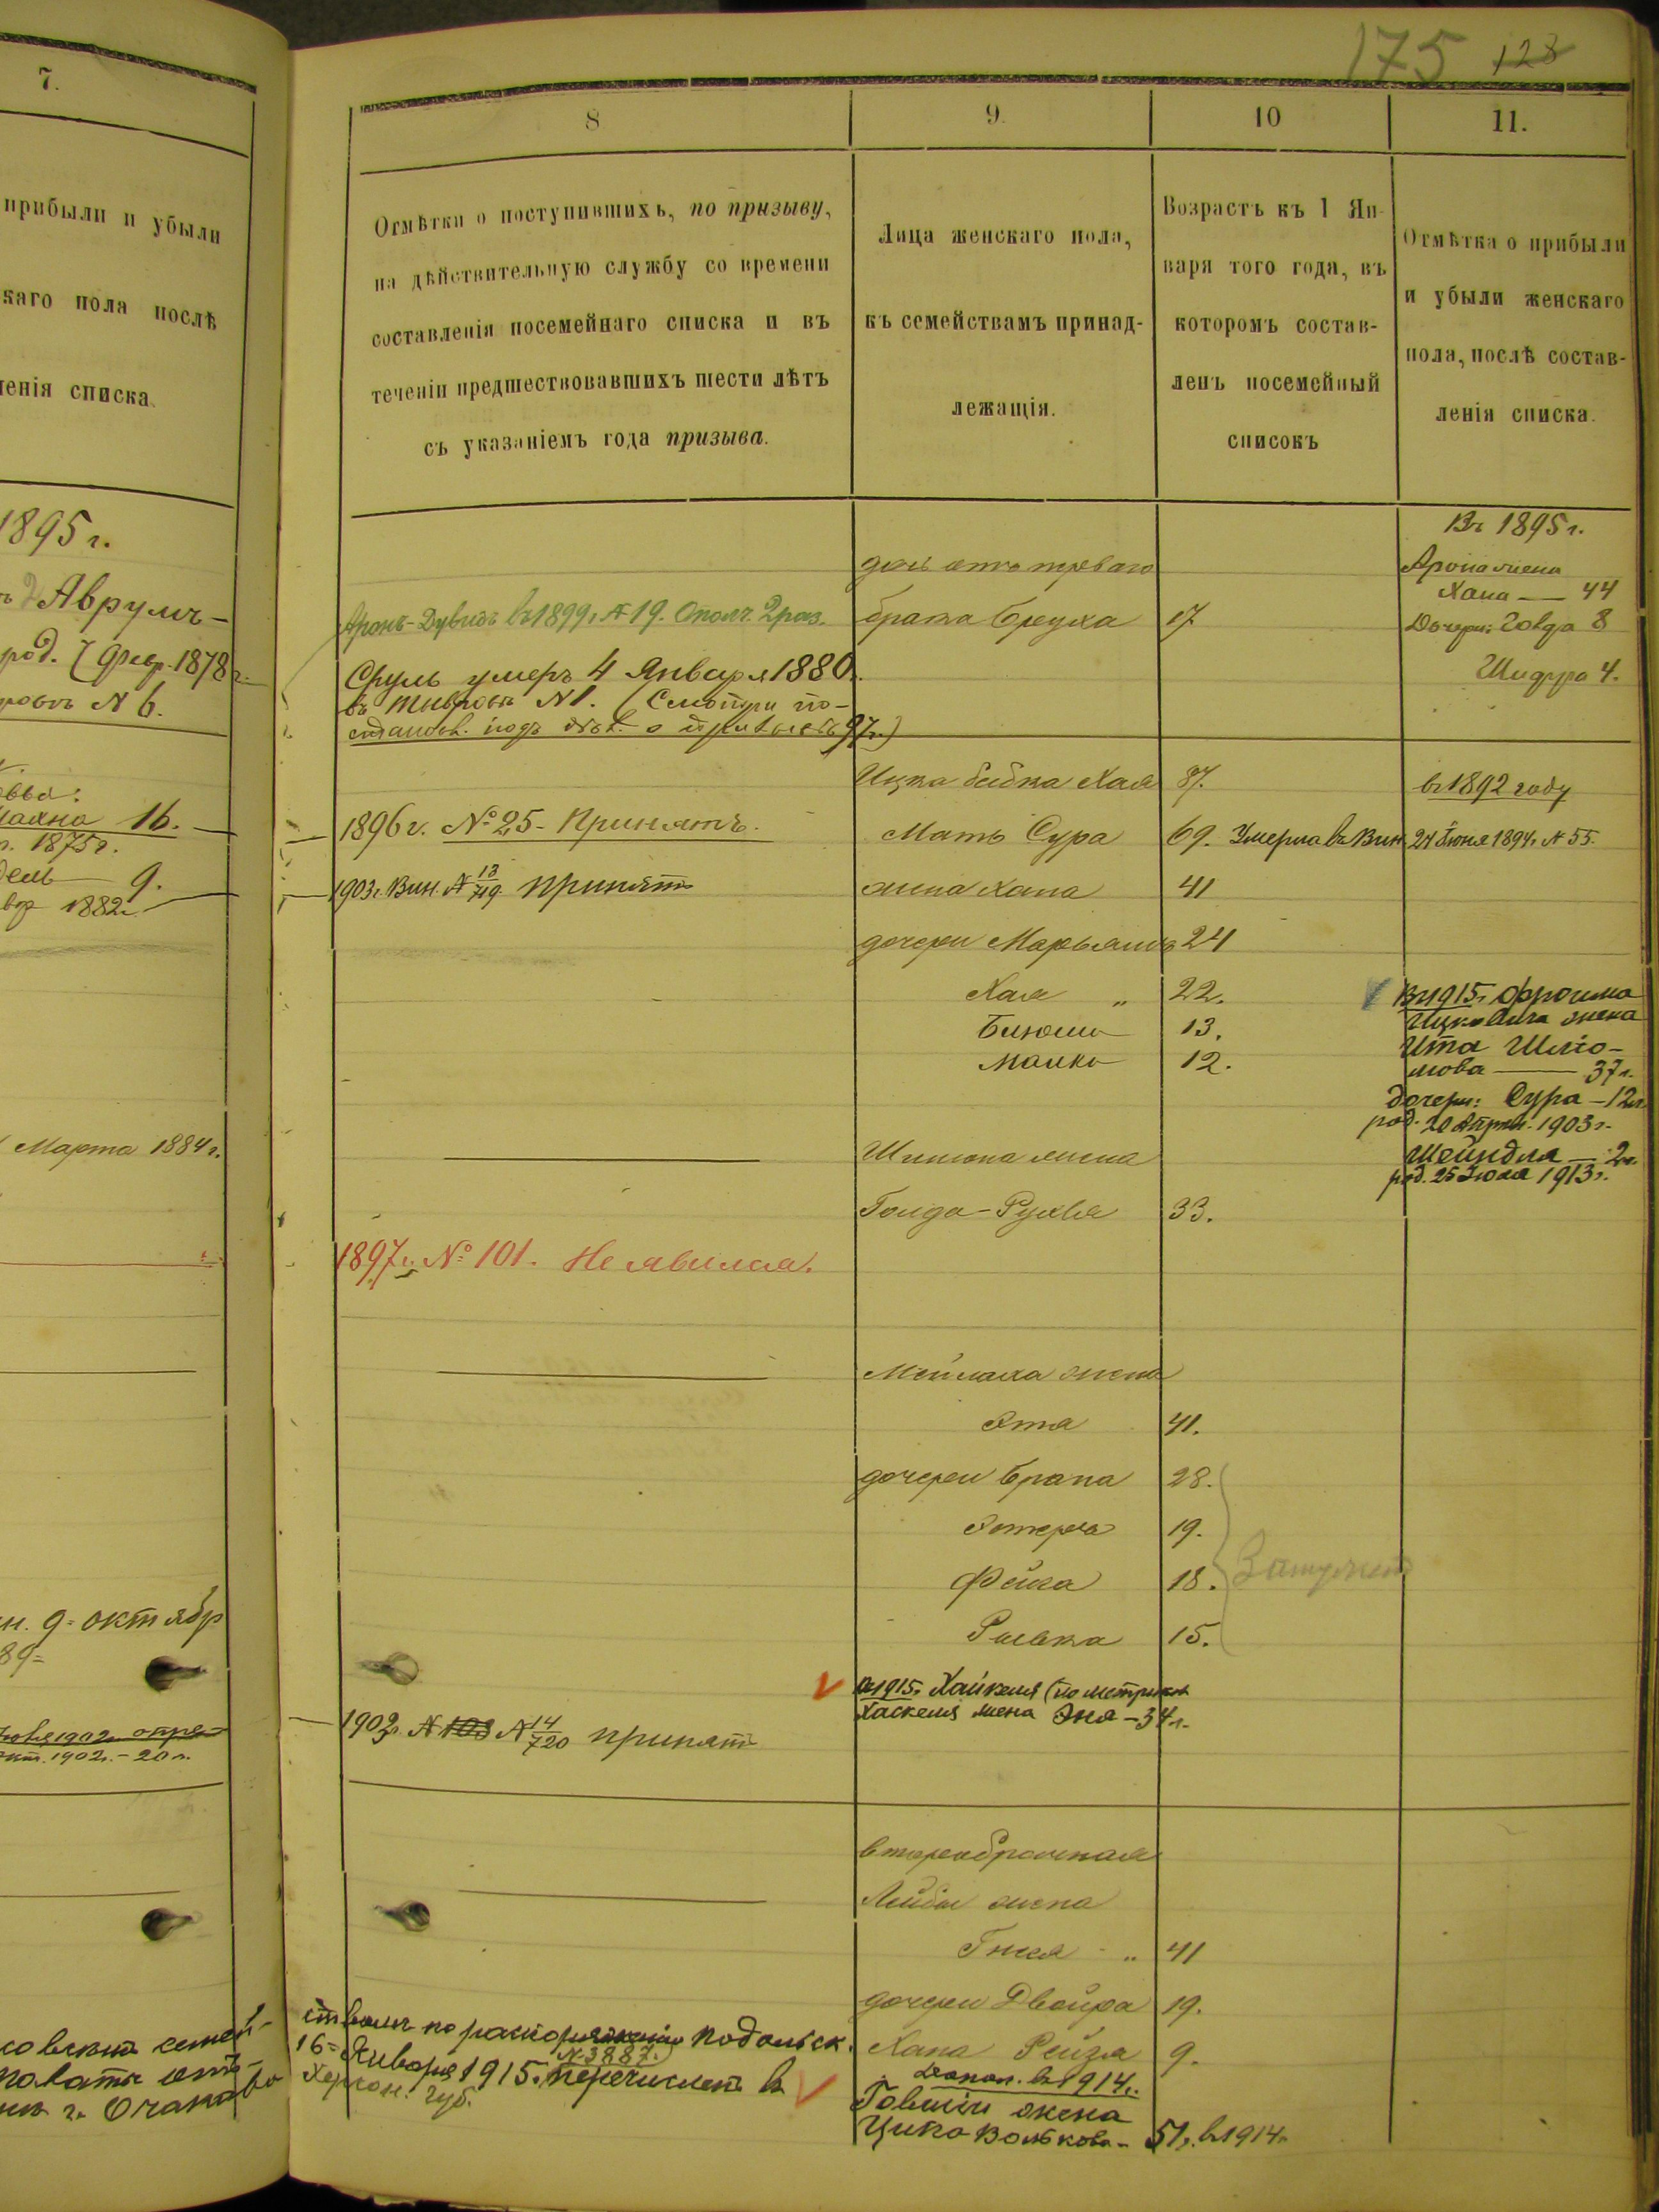 175 128
7.
прибыли и убыли
скаго пола послѣ
ленія списка.
1895 г.
Аврумъ-
род. 7 Февр. 1878 г.
N 6.
16.
1875 г.
9.
1882 г.
Марта 1884 г.
9= октябр
89=
окт. 1902 г. - 20 л.
семей-
г. Очаково
8
9.
10
11.
Отмѣтки о поступившихъ, по призыву,
на дѣйствительную службу со времени
составленія посемейнаго списка и въ
теченіи предшествовавшихъ шести лѣтъ
съ указаніемъ года призыва.
Лица женскаго пола,
къ семействамъ принад-
лежащія.
Возрастъ къ 1 Ян-
варя того года, въ
которомъ состав-
ленъ посемейный
списокъ
Отмѣтка о прибыли
и убыли женскаго
пола, послѣ состав-
ленія списка.
Въ 1895 г.
Арона жена
Хана — 44
Дочери: Говда 8
Шидра 4.
дочь отъ перваго
Аронъ-Дувидъ въ 1899 г. N 19. Ополч. 2 раз.
брака Бруха 17
Сруль умеръ 4 Января 1880 г.
въ Тывровѣ N 1. (Смотри по-
становл. подъ 97 г.)
Ицка бабка Хая 87.
въ 1892 году
1896 г. № 25 - Принятъ.
Мать Сура 69. Умерла въ Вин. 24 Іюня 1894 г. N 55.
1903 г. Вин. N 13/719 принятъ
жена Хана 41
дочери Марьямъ 24
Хая „ 22.
Блюма 13.
Малка 12.
Въ 1915 г. Фроима
Ицковича жена
Ита Шліо-
мова — 37 л.
дочери: Сура - 12 л.
род. 20 Апрѣл. 1903 г.
Шейндля — 2 г.
род. 25 Іюля 1913 г.
Шимона жена
Голда-Рухля 33.
1897 г. № 101. Не явился.
Мейлаха жена
Эта 41.
дочери Брана 28.
Эстеръ 19.
Фейга 18.
Ривка 15.
Замужемъ
въ 1915 г. Хайкеля (по метрикѣ
Хаскеля жена Эня - 34 л.
1902 г. N 103 N 14/720 принятъ
второбрачная
Лейбы жена
Гнея „ 41
дочери Двойра 19.
Хана Рейзя 9.
ствомъ по распоряженію Подольск.
N 3887.)
16= Января 1915 г. перечисленъ въ
Херсон. губ.
Допол. въ 1914 г.
Говшіи жена
Ципа Волькова - 51 г. въ 1914 г.